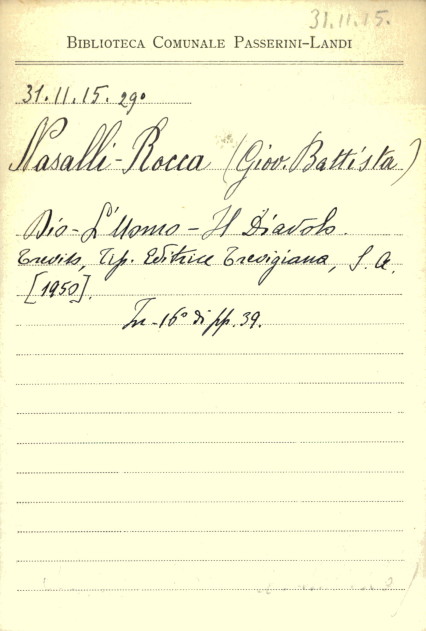 31.11.15.
BIBLIOTECA COMUNALE PASSERINI-LANDI
31.11.15. 29º
Nasalli-Rocca (Giov. Battista)
Dio - L'Uomo - Il Diavolo.
Treviso, Tip. Editrice Trevigiana, S. a.
[1950].
In-16º di pp. 39.